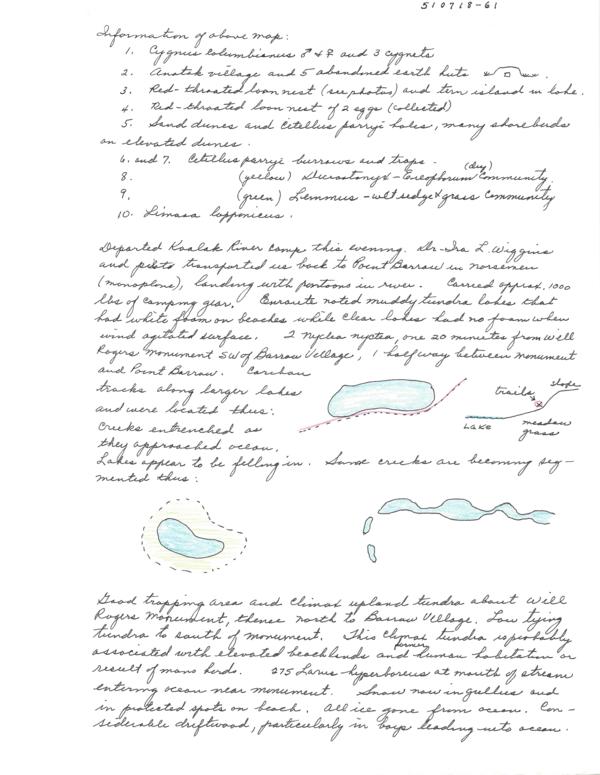 510718-61
Information of above map:
1. Cygnus columbianus ♂ & ♀ and 3 cygnets
2. village and 5 abandoned earth huts
3. Red-throated loon nest (see photos) and tern island in lake.
4. Red-throated loon nest of 2 eggs (collected)
5. Sand dunes and Citellus parryi holes, many shorebirds
on elevated dunes.
6. and 7. Citellus parryi burrows and traps.
8. (yellow) Dicrostonyx - Eriophorum (dry) community.
9. (green) Lemmus - wet sedge & grass community
10. Limosa lapponicus.
Departed Kaolak River camp this evening. Dr. Ira L. Wiggins
and pilots transported us back to Point Barrow in norseman
(monoplane), landing with pontoons in river. Carried approx. 1000
lbs of camping gear. Enroute noted muddy tundra lakes that
had white foam on beaches while clear lakes had no foam when
wind agitated surface. 2 Nyctea nyctea, one 20 minutes from Will
Rogers monument SW of Barrow Village, 1 halfway between monument
and Point Barrow. Caribou
tracks along larger lakes
and were located thus:
Creeks entrenched as
they approached ocean.
trails
slope
LAKE
meadow
grass
Lakes appear to be filling in. Some creeks are becoming seg-
mented thus:
Good trapping area and climax upland tundra about Will
Rogers Monument, thence north to Barrow Village. Low lying
tundra to south of monument. This climax tundra is probably
associated with elevated beachlands and former human habitation or
result of many herds. 275 Larus hyperboreus at mouth of stream
entering ocean near monument. Snow now in gullies and
in protected spots on beach. All ice gone from ocean. Con-
siderable driftwood, particularly in bays leading into ocean.